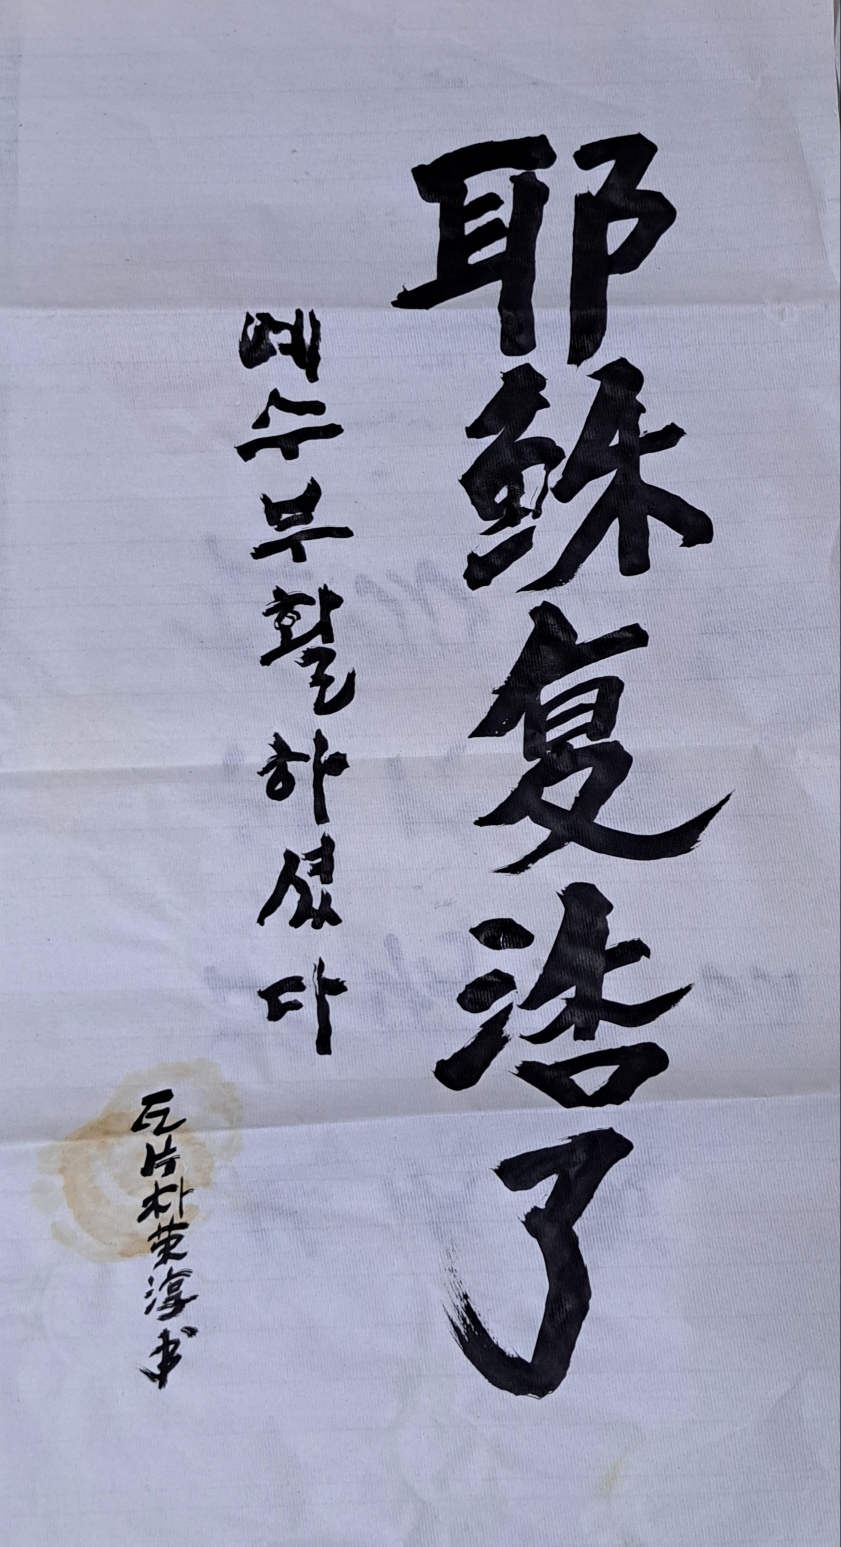 耶稣复活了
예수부활하셨다
瓦片朴英淳书